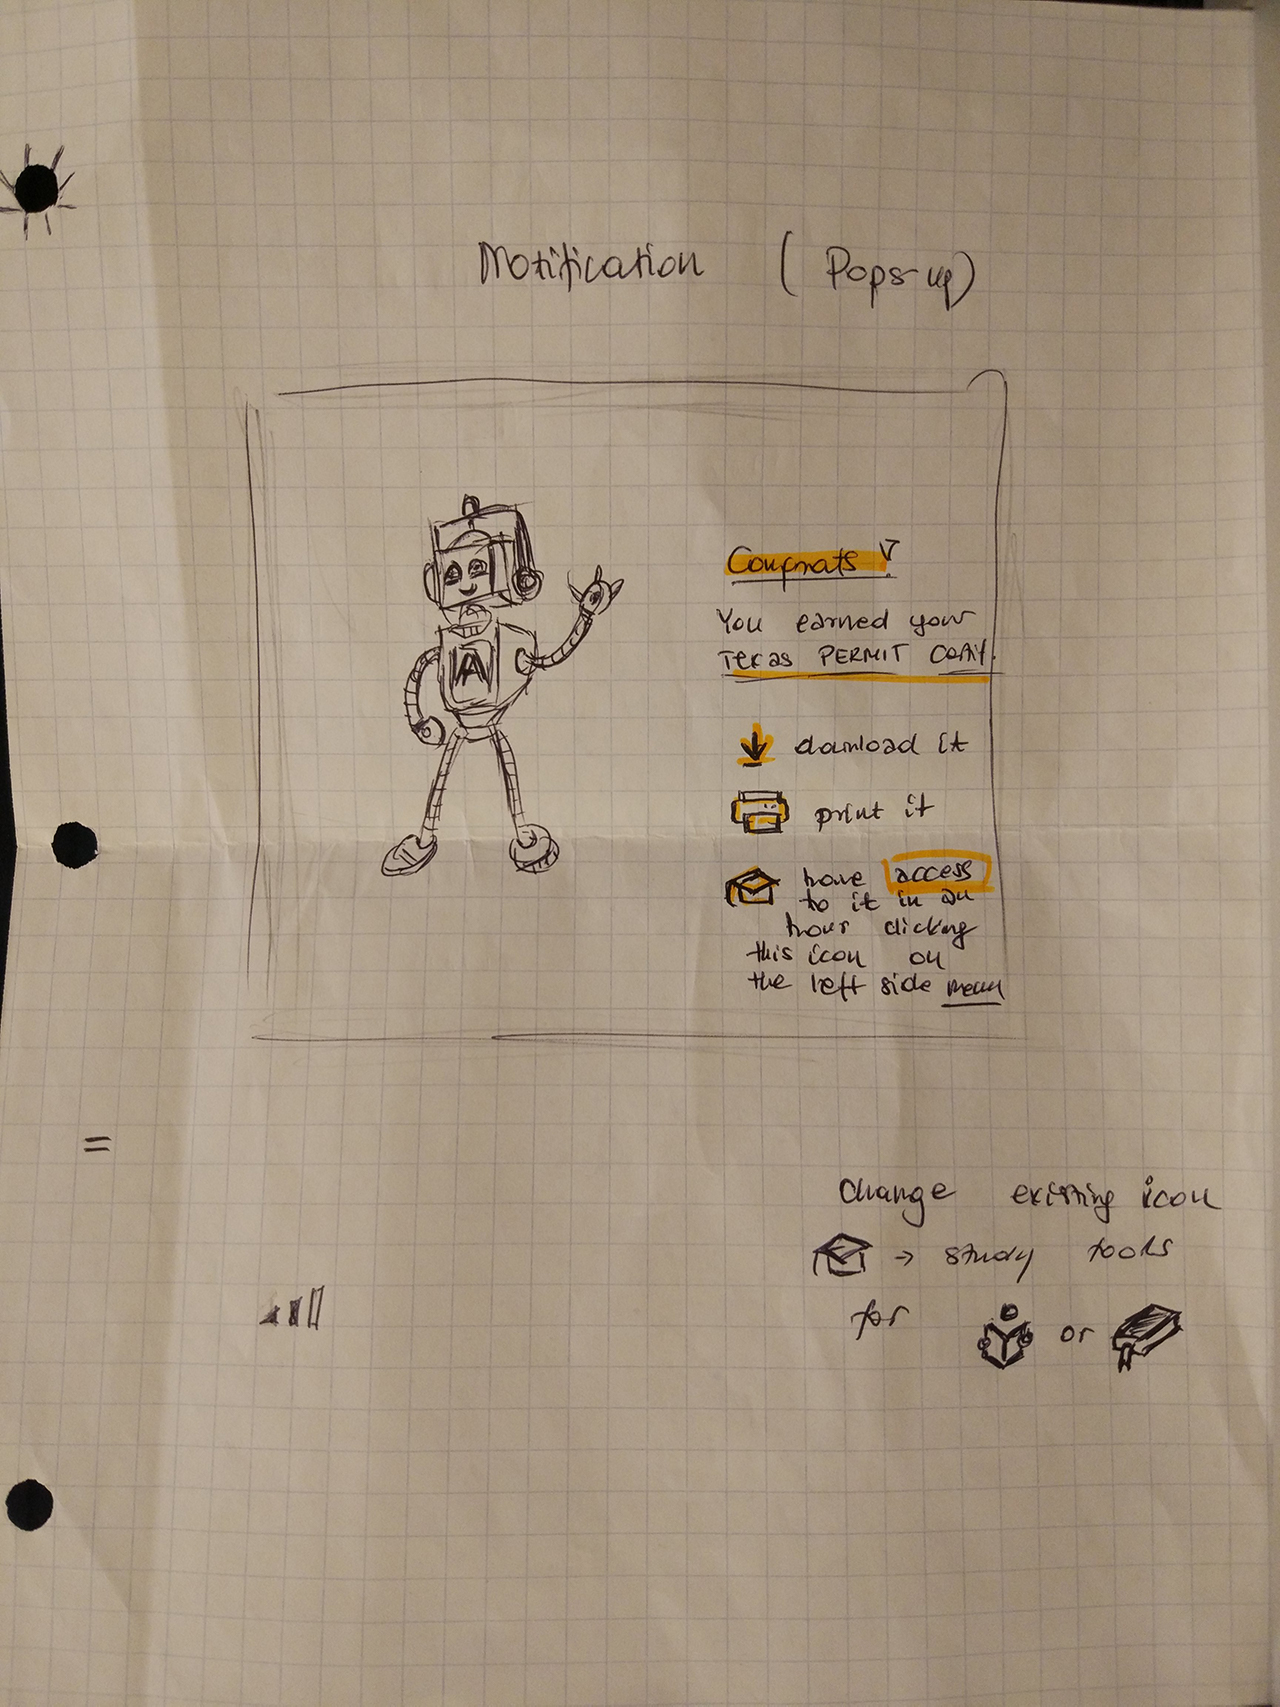 Notification (Pops-up)
Congrats!
You earned your
Texas PERMIT
A
download it
print it
have access
to it in an
hour clicking
this icon on
the left side menu
=
change existing icon
→ study tools
for or